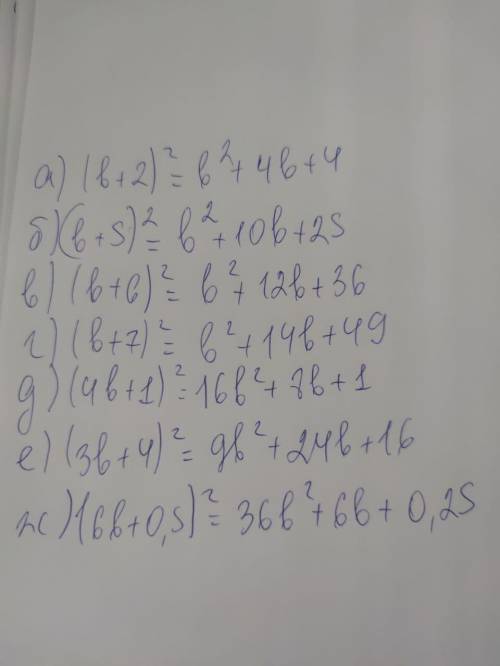 а) (b+2)²=b²+4b+4
б) (b+5)²=b²+10b+25
в) (b+6)²=b²+12b+36
г) (b+7)²=b²+14b+49
д) (4b+1)²=16b²+8b+1
е) (3b+4)²=9b²+24b+16
ж) (6b+0,5)²=36b²+6b+0,25